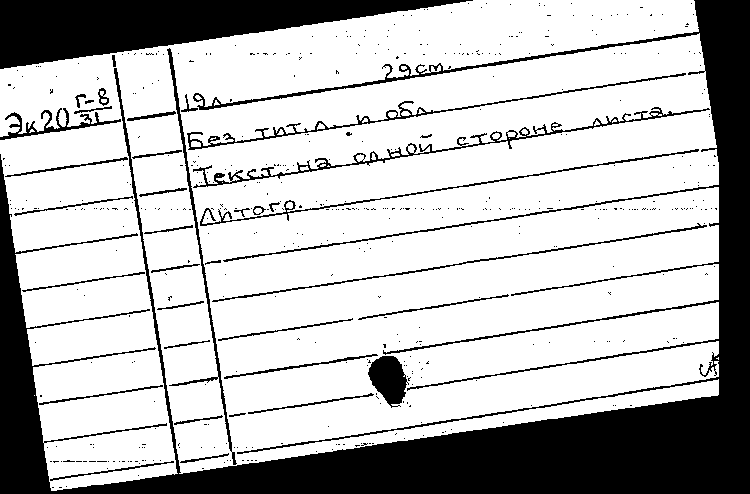 19л. 29см.
Эк20 Г-8/31
Без тит.л. и обл.
Текст, на одной стороне листа.
Литогр.